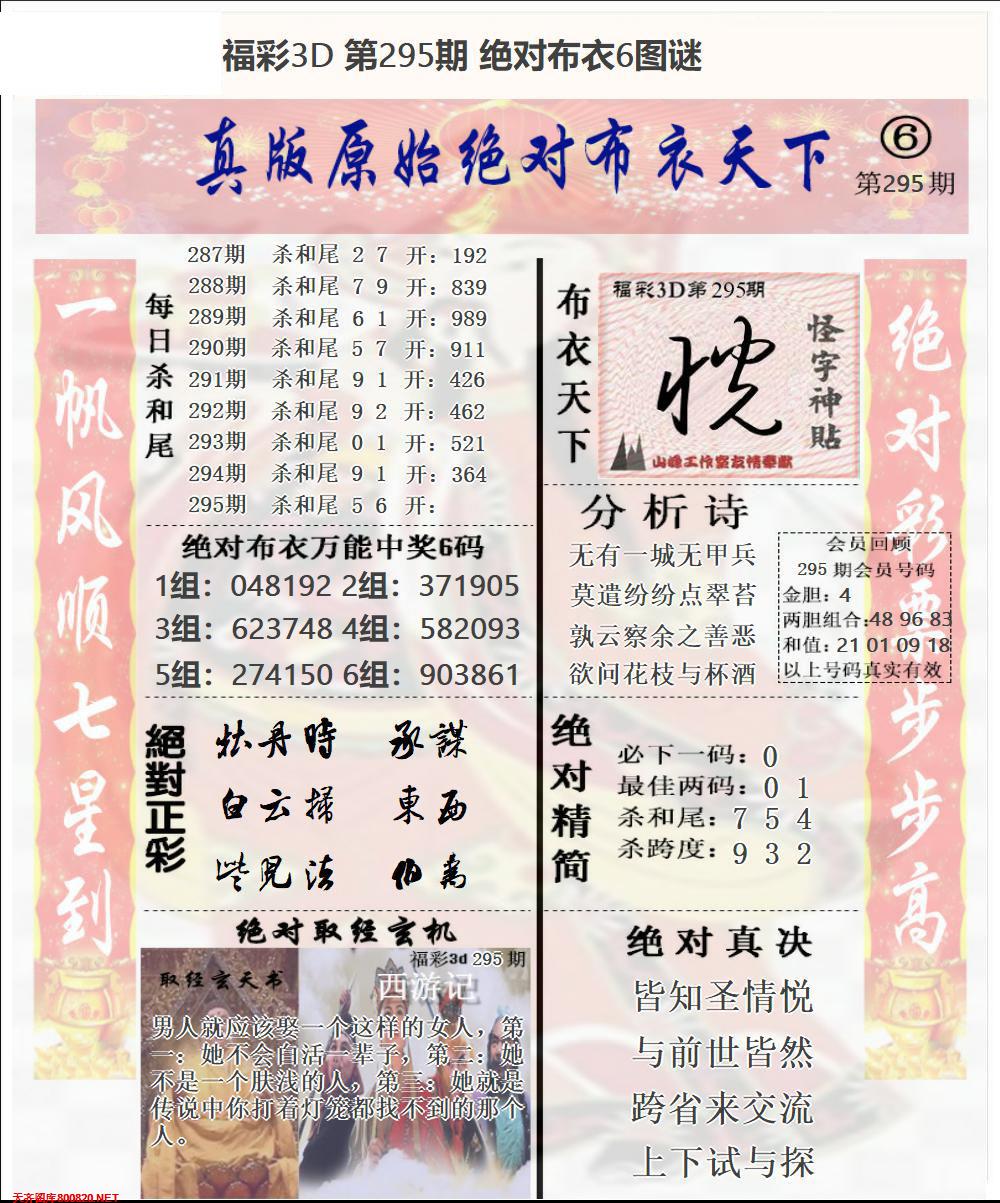 福彩3D 第295期 绝对布衣6图谜
真版原始绝对布衣天下
⑥
第295期
一帆风顺七星到
每日杀和尾
287期 杀和尾 2 7 开：192
288期 杀和尾 7 9 开：839
289期 杀和尾 6 1 开：989
290期 杀和尾 5 7 开：911
291期 杀和尾 9 1 开：426
292期 杀和尾 9 2 开：462
293期 杀和尾 0 1 开：521
294期 杀和尾 9 1 开：364
295期 杀和尾 5 6 开：
绝对布衣万能中奖6码
1组：048192 2组：371905
3组：623748 4组：582093
5组：274150 6组：903861
絕對正彩
牡丹時 承謀
白云掃 東西
些見法 伯為
绝对取经玄机
福彩3d 295期
取经玄天书
西游记
男人就应该娶一个这样的女人，第
一：她不会自活一辈子，第二：她
不是一个肤浅的人，第三：她就是
传说中你打着灯笼都找不到的那个
人。
布衣天下
福彩3D第295期
怪字神贴
山峰工作室友情奉献
分析诗
无有一城无甲兵
莫遣纷纷点翠苔
孰云察余之善恶
欲问花枝与杯酒
会员回顾
295期会员号码
金胆：4
两胆组合:48 96 83
和值：21 01 09 18
以上号码真实有效
绝对精简
必下一码：0
最佳两码：0 1
杀和尾：7 5 4
杀跨度：9 3 2
绝对真决
皆知圣情悦
与前世皆然
跨省来交流
上下试与探
绝对彩票步步高
天齐图库800820.NET